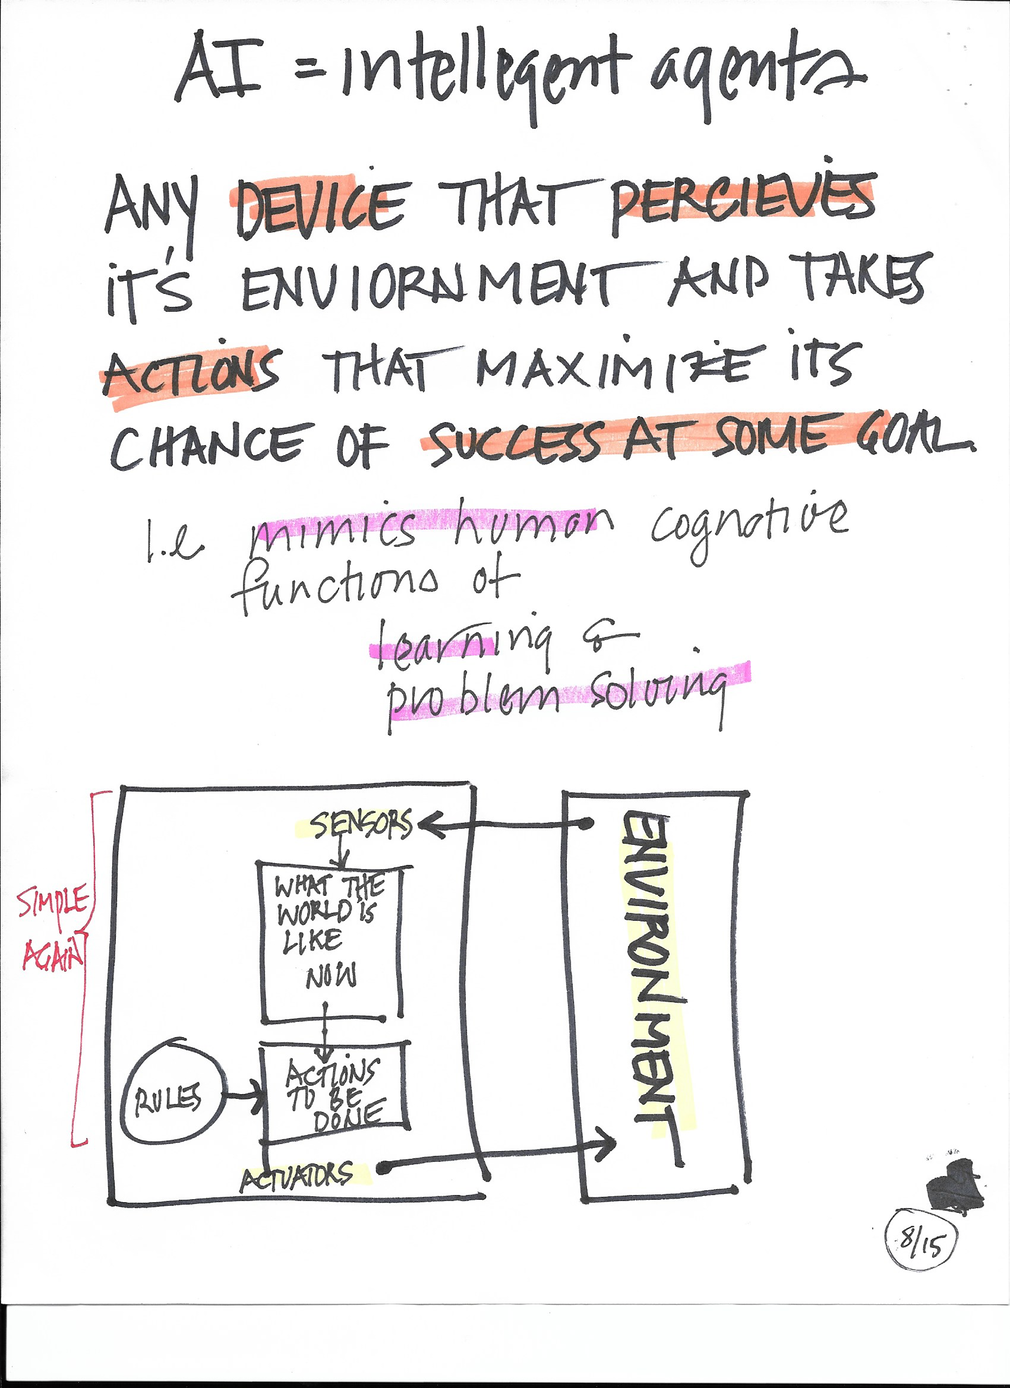 AI = intellegent agents
ANY DEVICE THAT PERCIEVES
IT'S ENVIORNMENT AND TAKES
ACTIONS THAT MAXIMIZE ITS
CHANCE OF SUCCESS AT SOME GOAL.
I.e mimics human cognative
functions of
learning &
problem solving
SENSORS
WHAT THE
WORLD IS
LIKE
NOW
ENVIRONMENT
SIMPLE
AGAIN
RULES
ACTIONS
TO BE
DONE
ACTUATORS
8/15